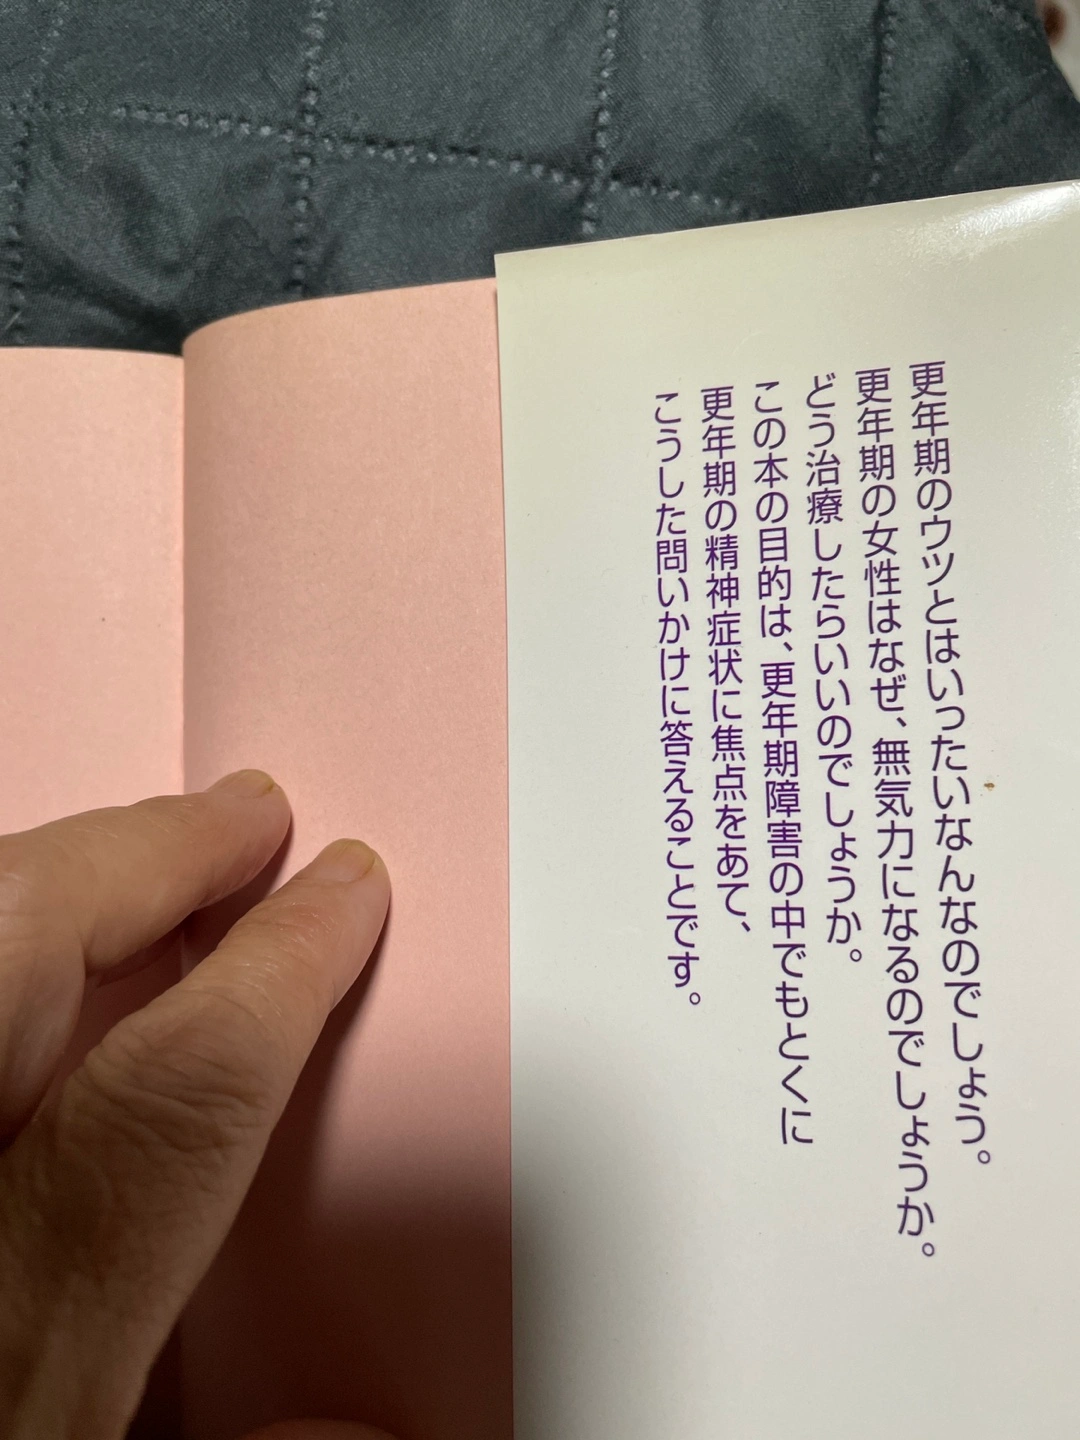 更年期のウツとはいったいなんなのでしょう。
更年期の女性はなぜ、無気力になるのでしょうか。
どう治療したらいいのでしょうか。
この本の目的は、更年期障害の中でもとくに
更年期の精神症状に焦点をあて、
こうした問いかけに答えることです。